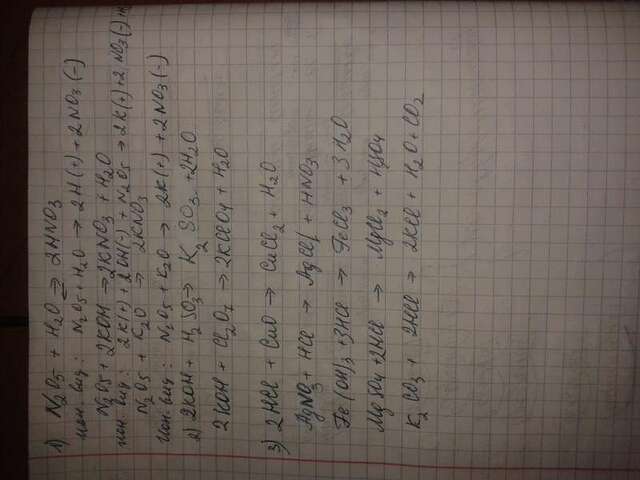 1) N2O5 + H2O ⇄ 2HNO3
ион. вид: N2O5 + H2O → 2H(+) + 2NO3(-)
N2O5 + 2KOH → 2KNO3 + H2O
ион. вид: 2K(+) + 2OH(-) + N2O5 → 2K(+) + 2NO3(-) +
N2O5 + K2O → 2KNO3
ион. вид: N2O5 + K2O → 2K(+) + 2NO3(-)
2) 2KOH + H2SO3 → K2SO3 + 2H2O
2KOH + Cl2O7 → 2KClO4 + H2O
3) 2HCl + CuO → CuCl2 + H2O
AgNO3 + HCl → AgCl↓ + HNO3
Fe(OH)3 + 3HCl → FeCl3 + 3H2O
MgSO4 + 2HCl → MgCl2 + H2SO4
K2CO3 + 2HCl → 2KCl + H2O + CO2